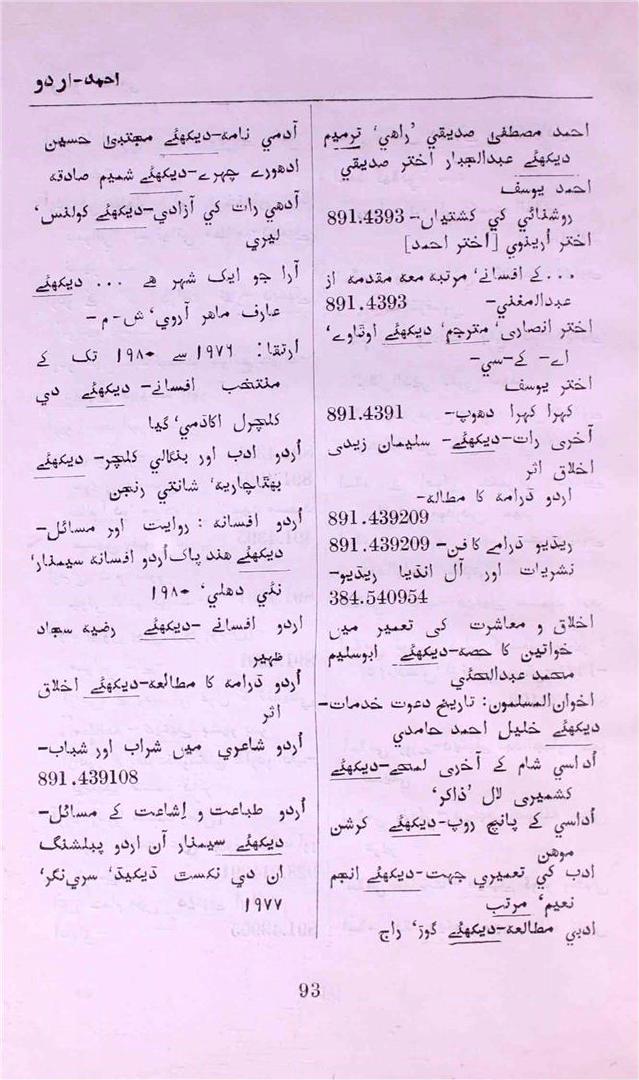 احمد-اردو
احمد مصطفیٰ صدیقي ’راهي‘ ترمیم
دیکھئے عبدالجبار اختر صدیقي
احمد یوسف
روشنائي کي کشتیاں- 891.4393
اختر اُرینوي [اختر احمد]
...کے افسانے‘ مرتبہ معہ مقدمہ از
عبدالمغني- 891.4393
اختر انصاری‘ مترجم‘ دیکھئے اوڈاوے‘
اے- کے-سي-
اختر یوسف
کہرا کہرا دھوپ- 891.4391
آخری رات-دیکھئے- سلیمان زیدی
اخلاق اثر
اردو ڈرامہ کا مطالہ-
891.439209
ریڈیو ڈرامے کا فن- 891.439209
نشریات اور آل انڈیا ریڈیو-
384.540954
اخلاق و معاشرت کی تعمیر میں
خواتین کا حصہ-دیکھئے ابوسلیم
محمد عبدالحئي
اخوان‌المسلمون: تاریخ دعوت خدمات-
دیکھئے خلیل احمد حامدي
اُداسي شام کے آخری لمحے-دیکھئے
کشمیری لال ’ذاکر‘
اُداسي کے پانچ روپ-دیکھئے کرشن
موهن
ادب کي تعمیري جہت-دیکھئے انجم
نعیم‘ مرتب
ادبي مطالعہ-دیکھئے گوڑ‘ راج
آدمي نامہ-دیکھئے مجتبیٰ حسین
ادھورے چہرے-دیکھئے شمیم صادقہ
آدھي رات کي آزادي-دیکھئے کولنس‘
لیري
آرا جو ایک شہر هے ... دیکھئے
عارف ماهر آروي‘ ش-م-
اُرتقا: ۱۹۷۶ سے ۱۹۸۰ تک کے
منتخب افسانے- دیکھئے دي
کلچرل اکاڈمي‘ گیا
اُردو ادب اور بنگالي کلچر- دیکھئے
بھٹاچاریہ‘ شانتي رنجن
اُردو افسانہ : روایت اور مسائل-
دیکھئے هند پاک اُردو افسانہ سیمنار‘
نئي دهلي‘ ۱۹۸۰
اردو افسانے -دیکھئے رضیہ سجاد
ظہیر
اُردو ڈرامہ کا مطالعہ-دیکھئے اخلاق
اثر
اُردو شاعري میں شراب اور شباب-
891.439108
اُردو طباعت و اِشاعت کے مسائل-
دیکھئے سیمنار آن اردو پبلشنگ
ان دي نکسٹ ڈیکیڈ‘ سري نگر‘
۱۹۷۷
93